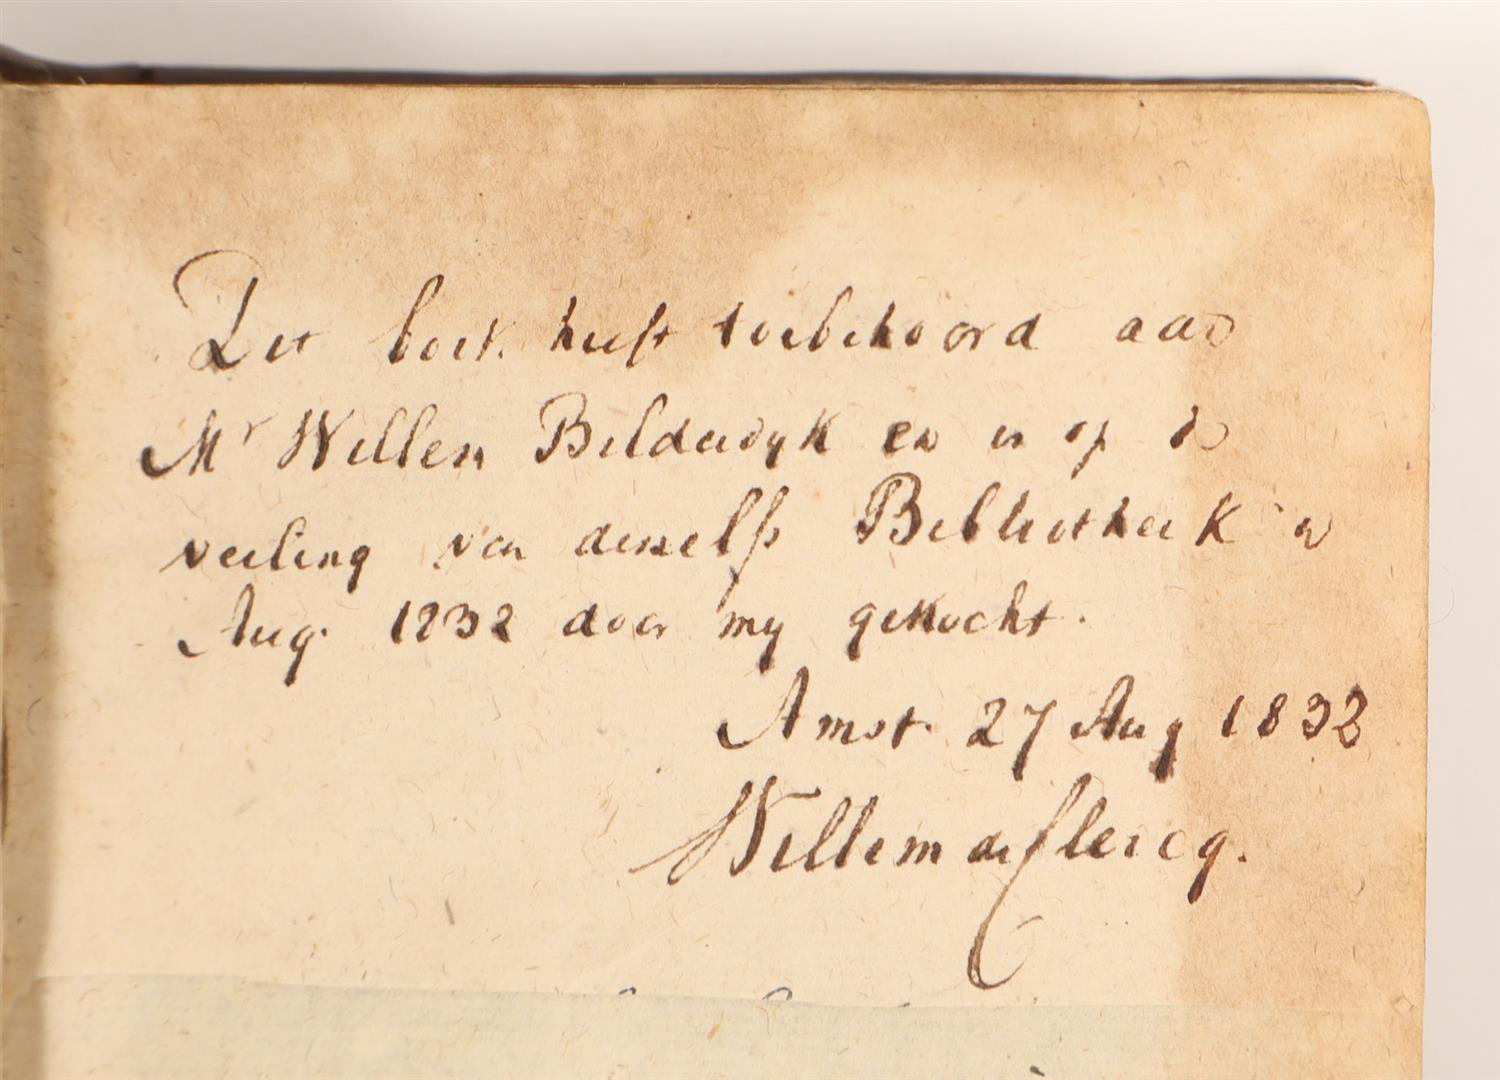 Dit boek heeft toebehoord aan
Mr Willem Bilderdyk en is op de
veiling van deszelfs Bibliotheek in
Aug. 1832 door my gekocht.
Amst. 27 Aug 1832
Willem de Clercq.